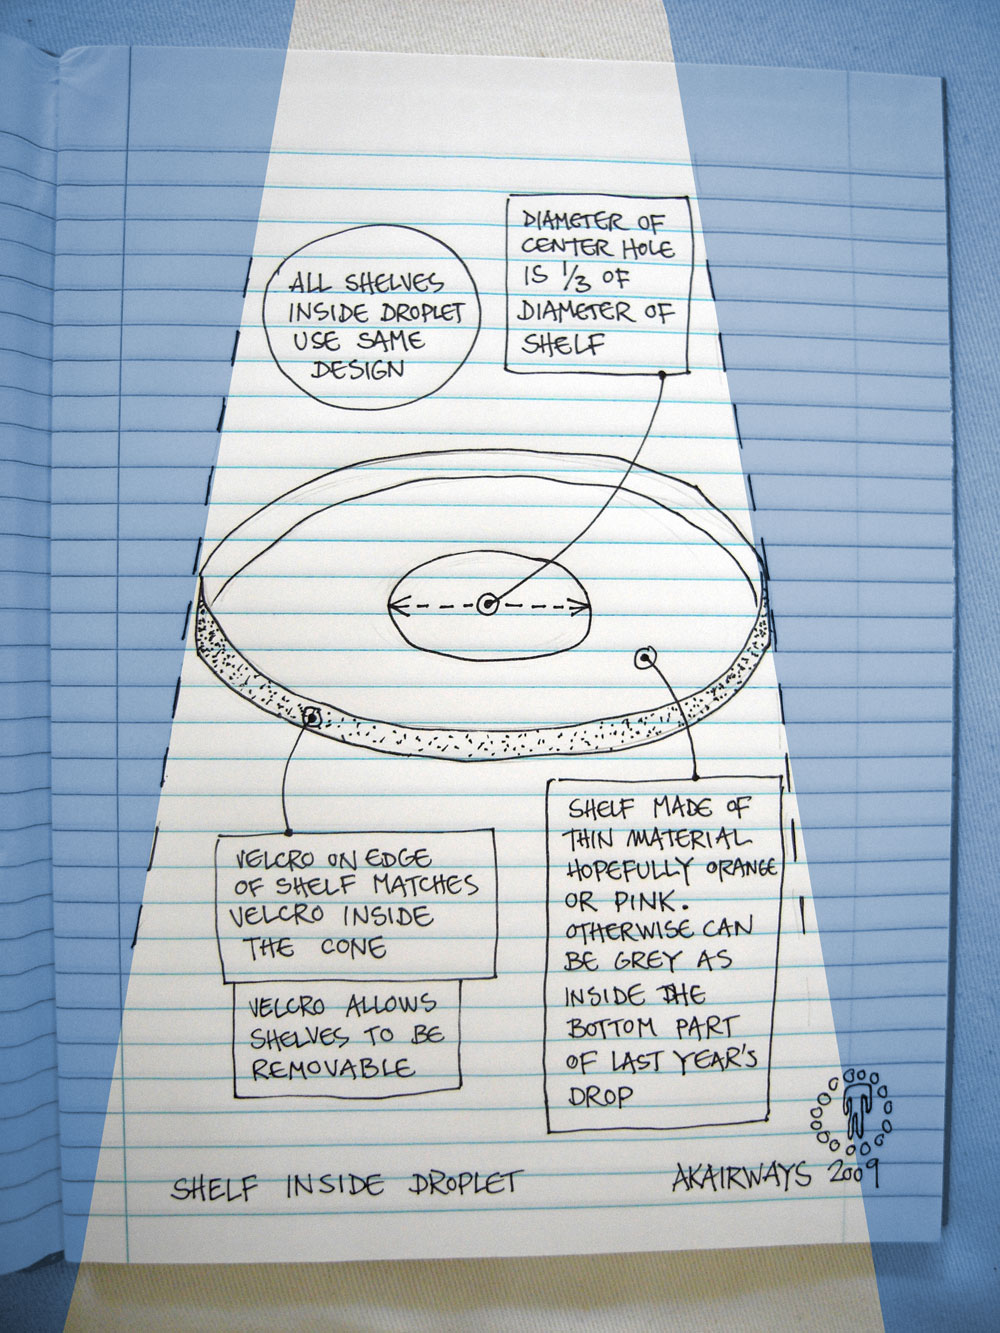 ALL SHELVES
INSIDE DROPLET
USE SAME
DESIGN
DIAMETER OF
CENTER HOLE
IS 1/3 OF
DIAMETER OF
SHELF
VELCRO ON EDGE
OF SHELF MATCHES
VELCRO INSIDE
THE CONE
VELCRO ALLOWS
SHELVES TO BE
REMOVABLE
SHELF MADE OF
THIN MATERIAL
HOPEFULLY ORANGE
OR PINK.
OTHERWISE CAN
BE GREY AS
INSIDE THE
BOTTOM PART
OF LAST YEAR'S
DROP
SHELF INSIDE DROPLET
AKAIRWAYS 2009